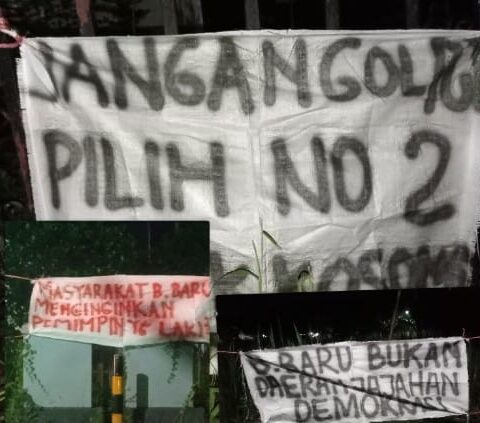 JANGAN GOLPUT
PILIH NO 2
KOSONG
MASYARAKAT B.BARU
MENGINGINKAN
PEMIMPIN YG LAKI2
B.BARU BUKAN
DAERAH JAJAHAN
DEMOKRASI